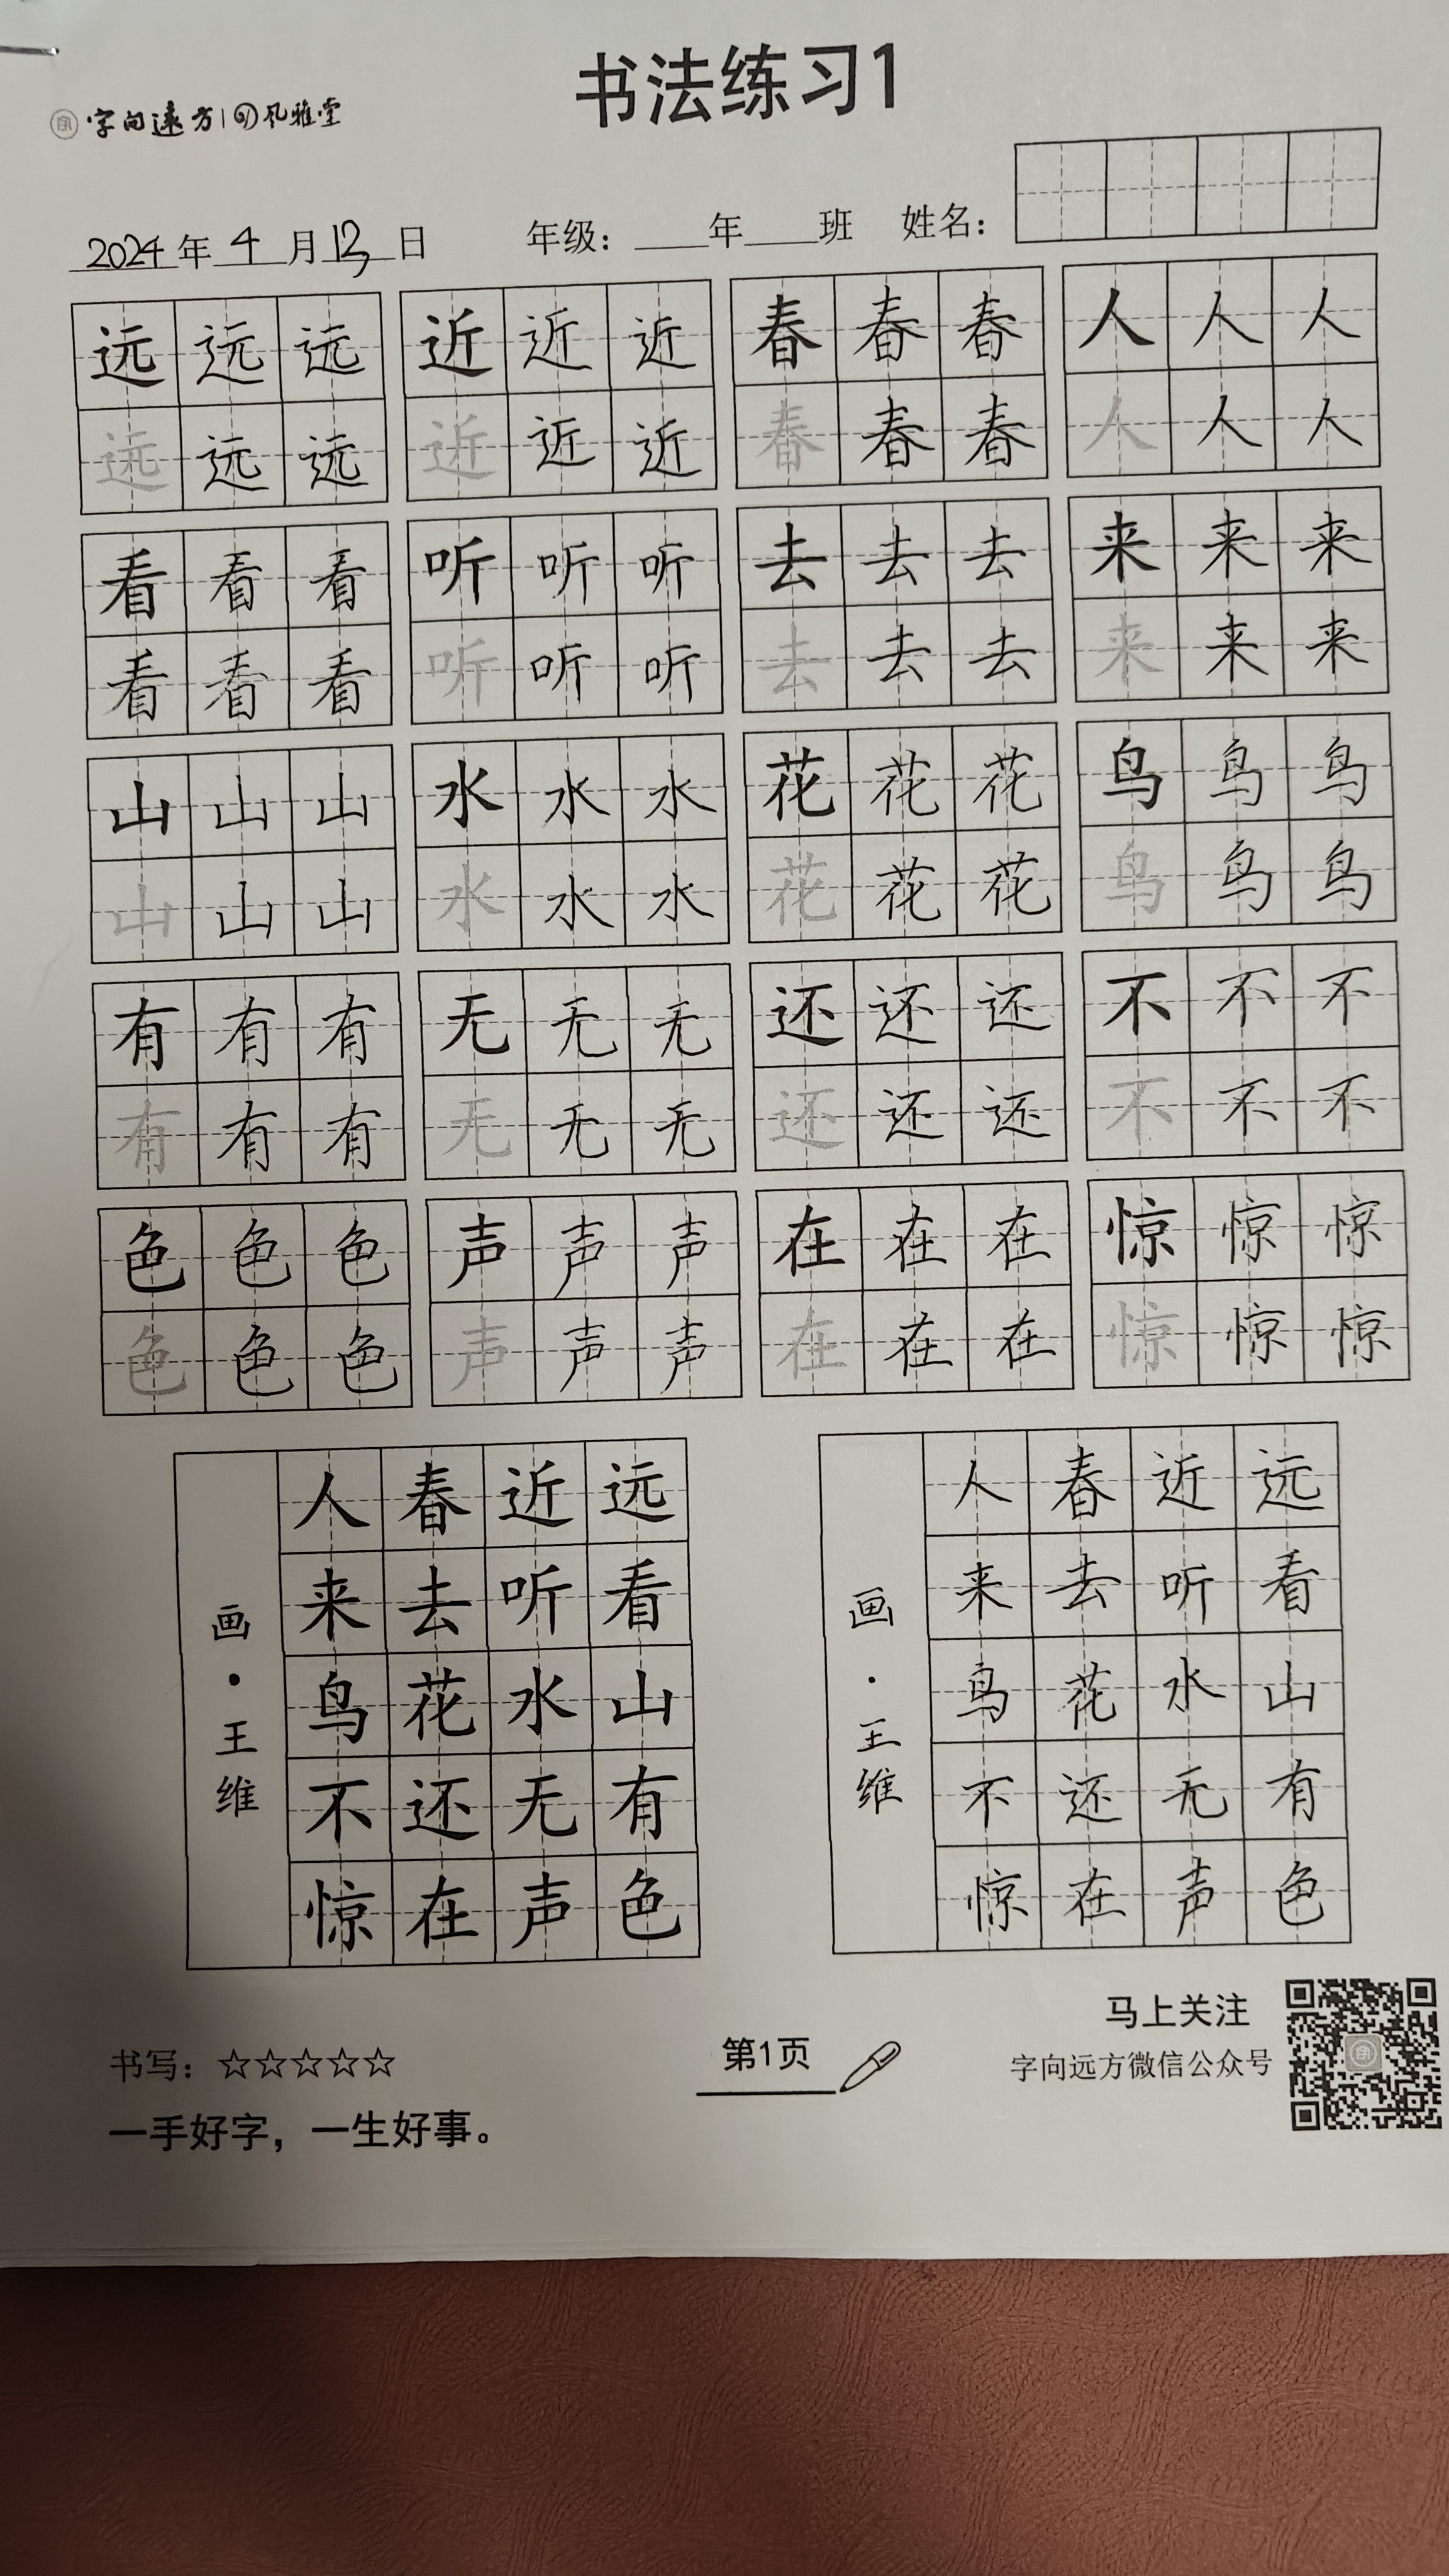 书法练习1
字向远方 风雅堂
2024年4月13日 年级：____年____班 姓名：
远远远 近近近 春春春 人人人
远远远 近近近 春春春 人人人
看看看 听听听 去去去 来来来
看看看 听听听 去去去 来来来
山山山 水水水 花花花 鸟鸟鸟
山山山 水水水 花花花 鸟鸟鸟
有有有 无无无 还还还 不不不
有有有 无无无 还还还 不不不
色色色 声声声 在在在 惊惊惊
色色色 声声声 在在在 惊惊惊
远看山有色
近听水无声
春去花还在
人来鸟不惊
画·王维
远看山有色
近听水无声
春去花还在
人来鸟不惊
画·王维
书写：☆☆☆☆☆
一手好字，一生好事。
第1页
马上关注
字向远方微信公众号